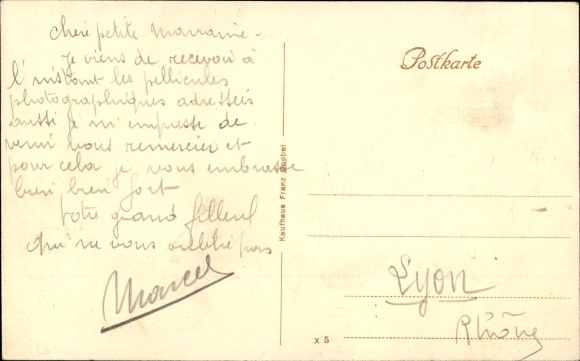 Chère petite Marraine -
Je viens de recevoir à
l'instant les pellicules
photographiques adressées
aussi je m'empresse de
venir vous remercier et
pour cela je vous embrasse
bien bien fort
Votre grand filleul
qui ne vous oublie pas
Marcel
Kaufhaus Franz Goebel
Postkarte
Lyon
Rhône
x 5